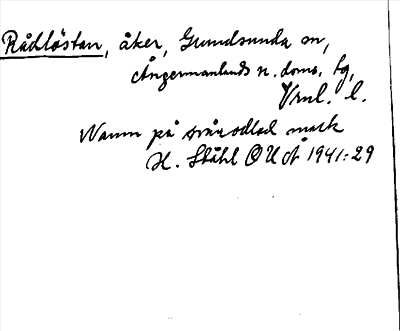 Rådlöstan, åker, Gumdsunda sn,
Ångermanlands n. doms. fg,
Vrnl. l.
Namn på svårodlad mark
H. Ståhl OUÅ 1941:29